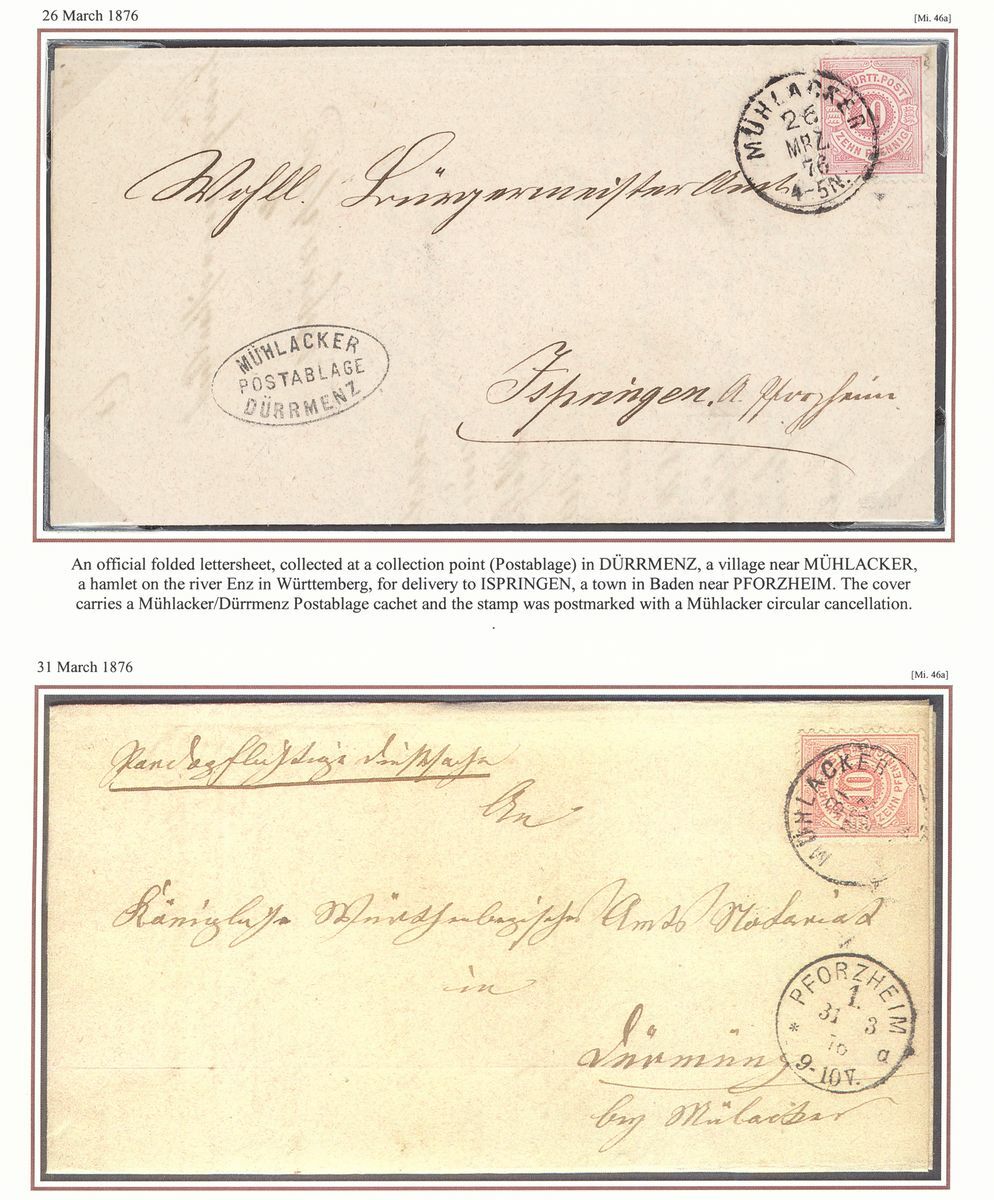 26 March 1876
[Mi. 46a]
WÜRTT. POST
10
ZEHN PFENNIG
MÜHLACKER
26
MRZ.
76
4-5N.
Wohll. Bürgermeister Amt
MÜHLACKER
POSTABLAGE
DÜRRMENZ
Ispringen. A. Pforzheim
An official folded lettersheet, collected at a collection point (Postablage) in DÜRRMENZ, a village near MÜHLACKER,
a hamlet on the river Enz in Württemberg, for delivery to ISPRINGEN, a town in Baden near PFORZHEIM. The cover
carries a Mühlacker/Dürrmenz Postablage cachet and the stamp was postmarked with a Mühlacker circular cancellation.
31 March 1876
[Mi. 46a]
Portopflichtige Dienstsache
An
10
ZEHN PFENNIG
MÜHLACKER
31
Königliche Württembergisches Amts Notariat
in
PFORZHEIM
1.
31 3
76 a
* 9-10V.
Dürmünz
bey Mülacker